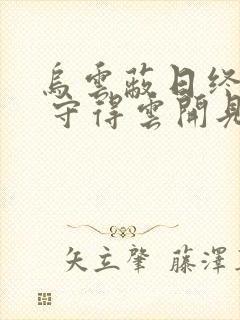 烏雲蔽日终
守得雲開見
矢立肇 藤澤